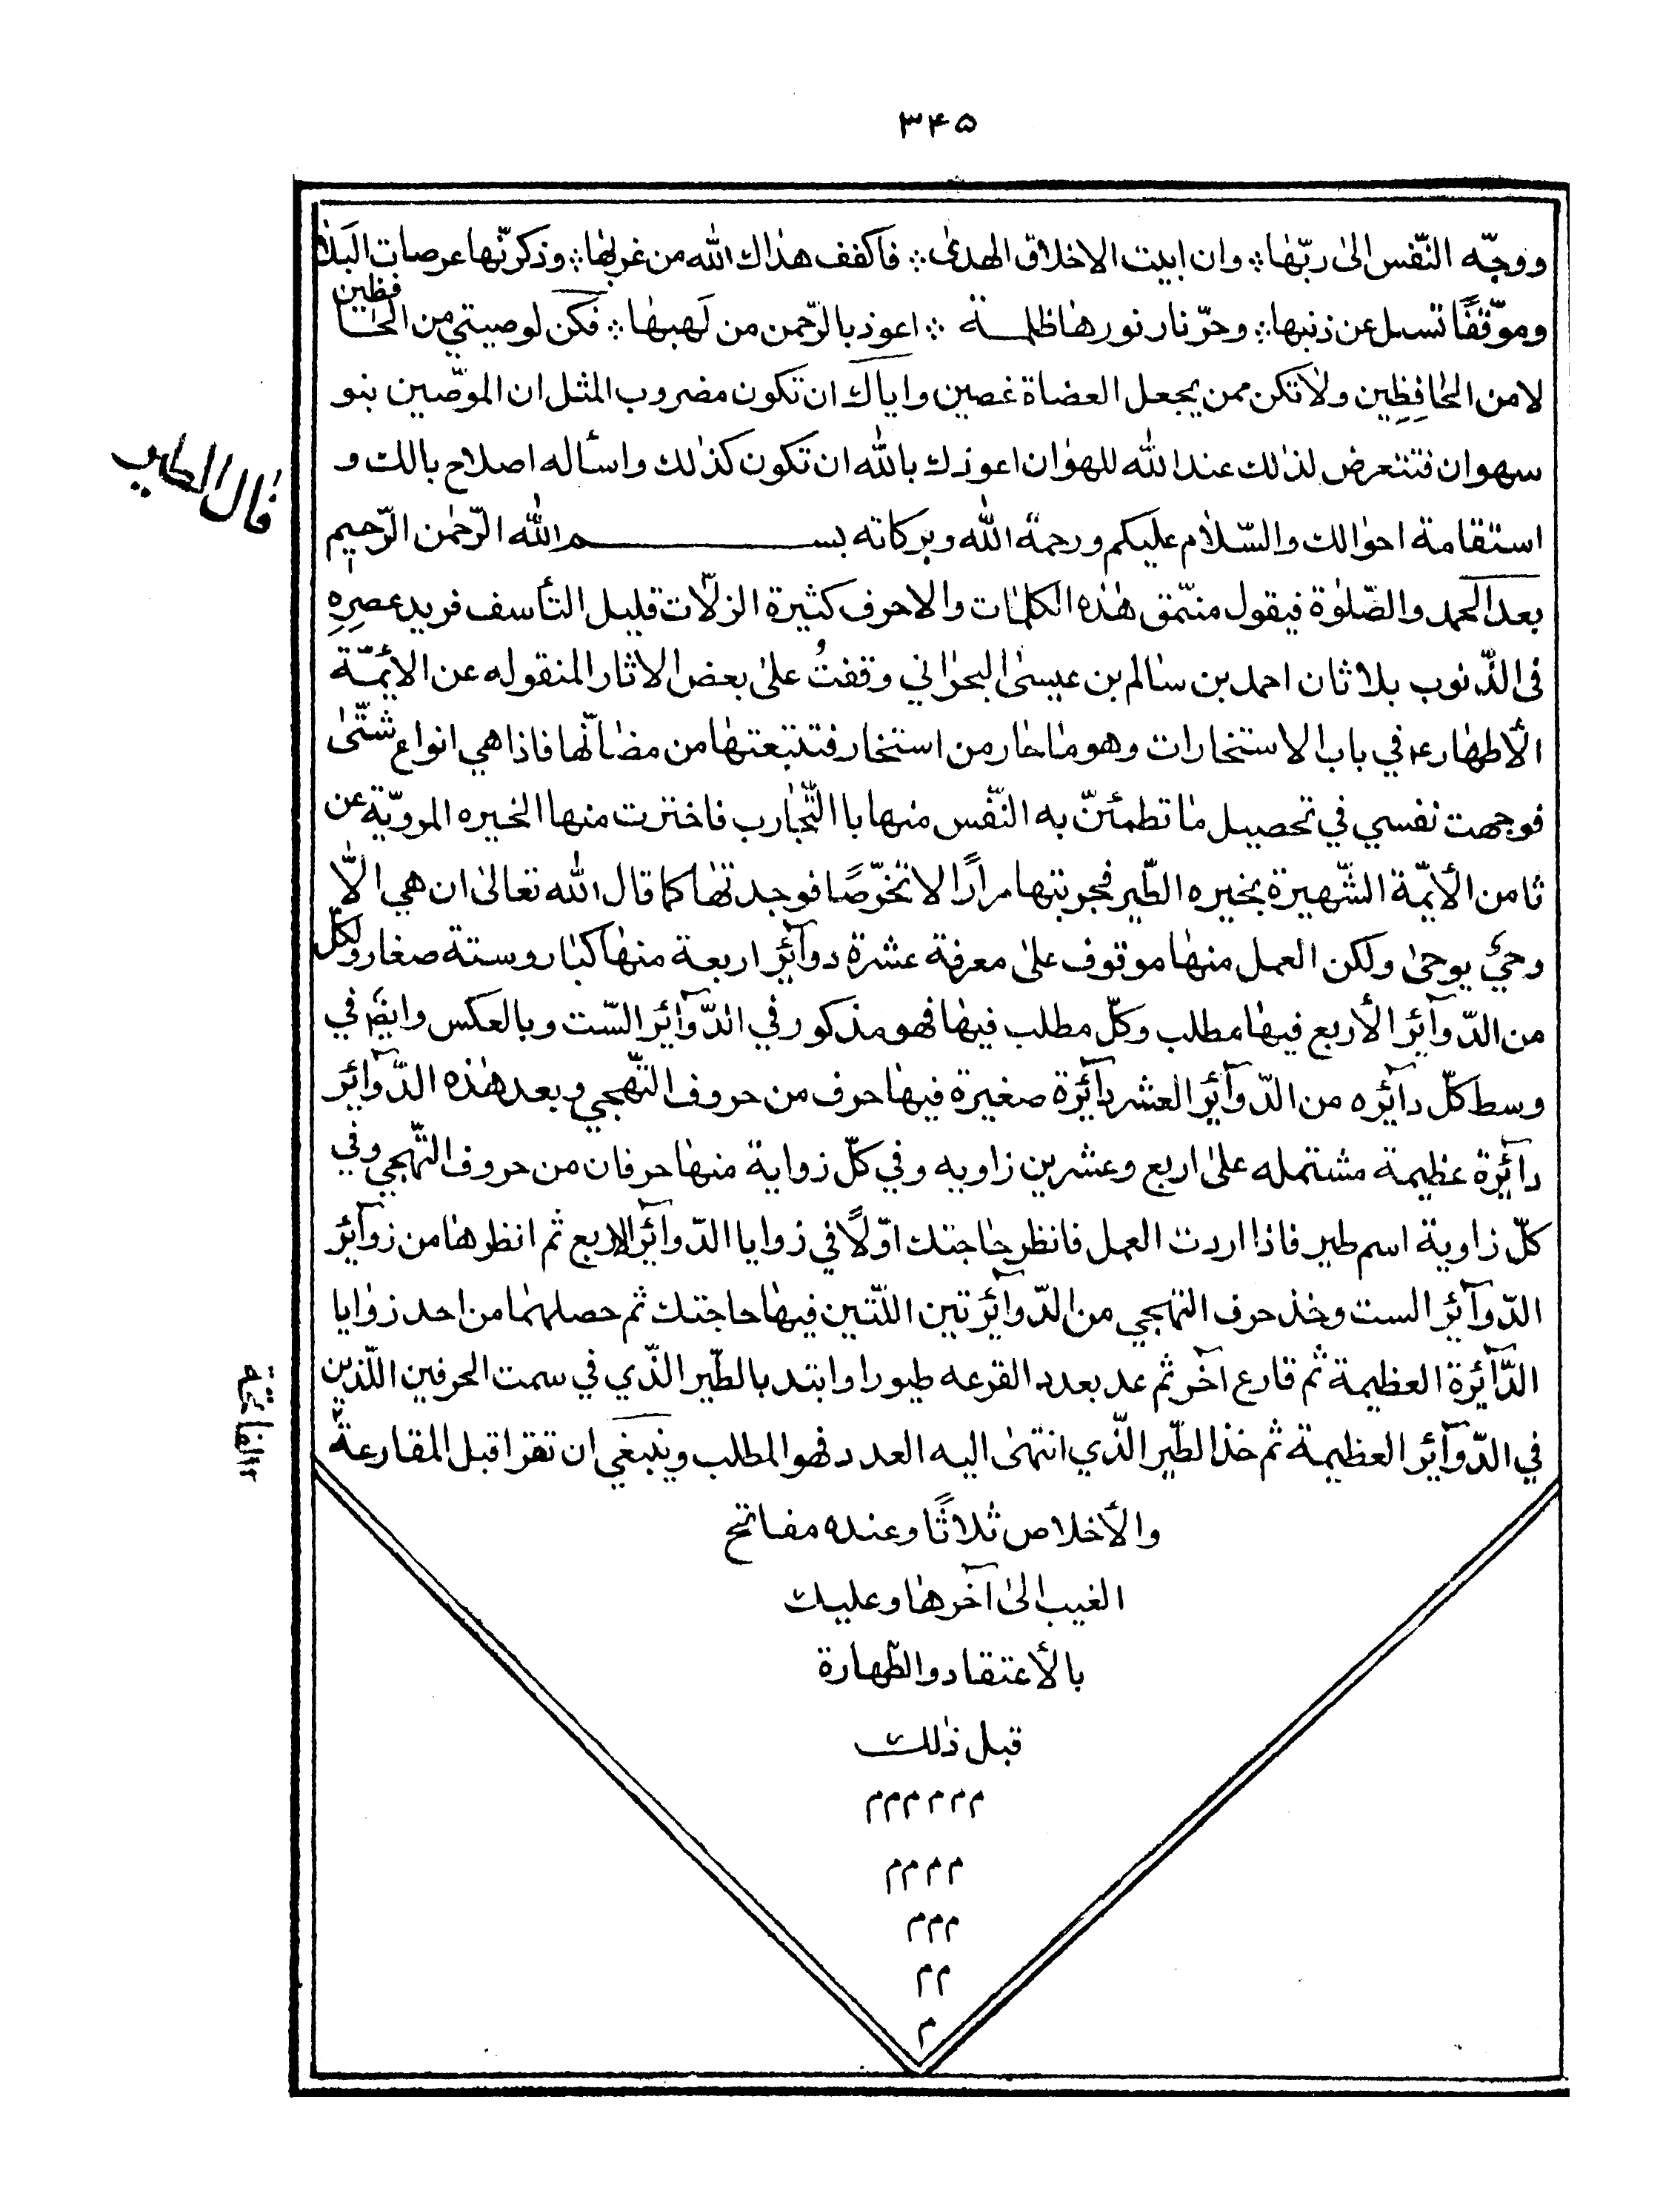 ۳۴۵
ووجّه النّفس الىٰ ربّها؞ وان ابيت الاخلاق الهدىٰ؞ فاكفف هداك الله من غربها؞ وذكرنّها عرصات البلا
وموّقفًا تسئل عن ذنبها؞ وحرّ نار نورها ظلمة ؞ اعوذ بالرّحمن من لهبها؞ فكن لوصيتي من الحافظين
لا من الحافِظِين ولا تكن ممن يجعل العضاة غصين واياك ان تكون مضروب المثل ان الموصّين بنو
سهوان فتتعرض لذلك عند الله للهوان اعوذك بالله ان تكون كذلك واسأله اصلاح بالك و
استقامة احوالك والسّلام عليكم ورحمة الله وبركاته بسم الله الرّحمٰن الرّحيم
بعد الحمد والصّلوٰة فيقول منمّق هٰذه الكلمات والاحرف كثيرة الزلّات قليل التأسف فريد عصرِهِ
فى الذّنوب بلا ثان احمد بن سالم بن عيسىٰ البحراني وقفتُ علىٰ بعض الاثار المنقوله عن الأئمّة
الأطهارع في باب الاستخارات وهو ما حار من استخار فتتبعتها من مضآنّها فاذا هي انواع شتّىٰ
فوجهت نفسي في تحصيل ما تطمئنّ به النّفس منها باالتّجارب فاخترت منها الخيره المرويّة عن
ثامن الأئمّة الشّهيرة بخيره الطّير فجربتها مرارًا لا تخرّصًا فوجدتها كما قال الله تعالىٰ ان هي الّا
وحيٌ يوحىٰ ولكن العمل منها موقوف علىٰ معرفة عشرة دوآئر اربعة منها كبار وستة صغار ولكلّ
من الدّوآئر الأربع فيها مطلب وكلّ مطلب فيها فهو مذكور في الدّوآئر السّت وبالعكس وايضًا في
وسط كلّ دآئره من الدّوآئر العشر دآئرة صغيرة فيها حرف من حروف التّهجي وبعد هٰذه الدّوآئر
دآئرة عظيمة مشتمله علىٰ اربع وعشرين زاويه وفي كلّ زواية منها حرفان من حروف التّهجي وفي
كلّ زاوية اسم طير فاذا اردت العمل فانظر حاجتك اوّلًا في زوايا الدّوآئر الاربع ثم انظرها من زوآئر
الدّوآئر الست وخذ حرف التهجي من الدّوآئرتين اللّتين فيها حاجتك ثم حصلهما من احد زوايا
الدّآئرة العظيمة ثم قارع آخر ثم عد بعدد القرعه طيورا وابتد بالطّير الذّي في سمت الحرفين اللّذين
في الدّوآئر العظيمة ثم خذ الطّير الذّي انتهىٰ اليه العدد فهو المطلب وينبغي ان تقرا قبل المقارعة
والأخلاص ثلاثًا وعنده مفاتح
الغيب الىٰ آخرها وعليك
بالأعتقاد والطّهارة
قبل ذٰلك
م م م م م م
م م م م
م م م
م م
م
فال الطيور
الفاتحة